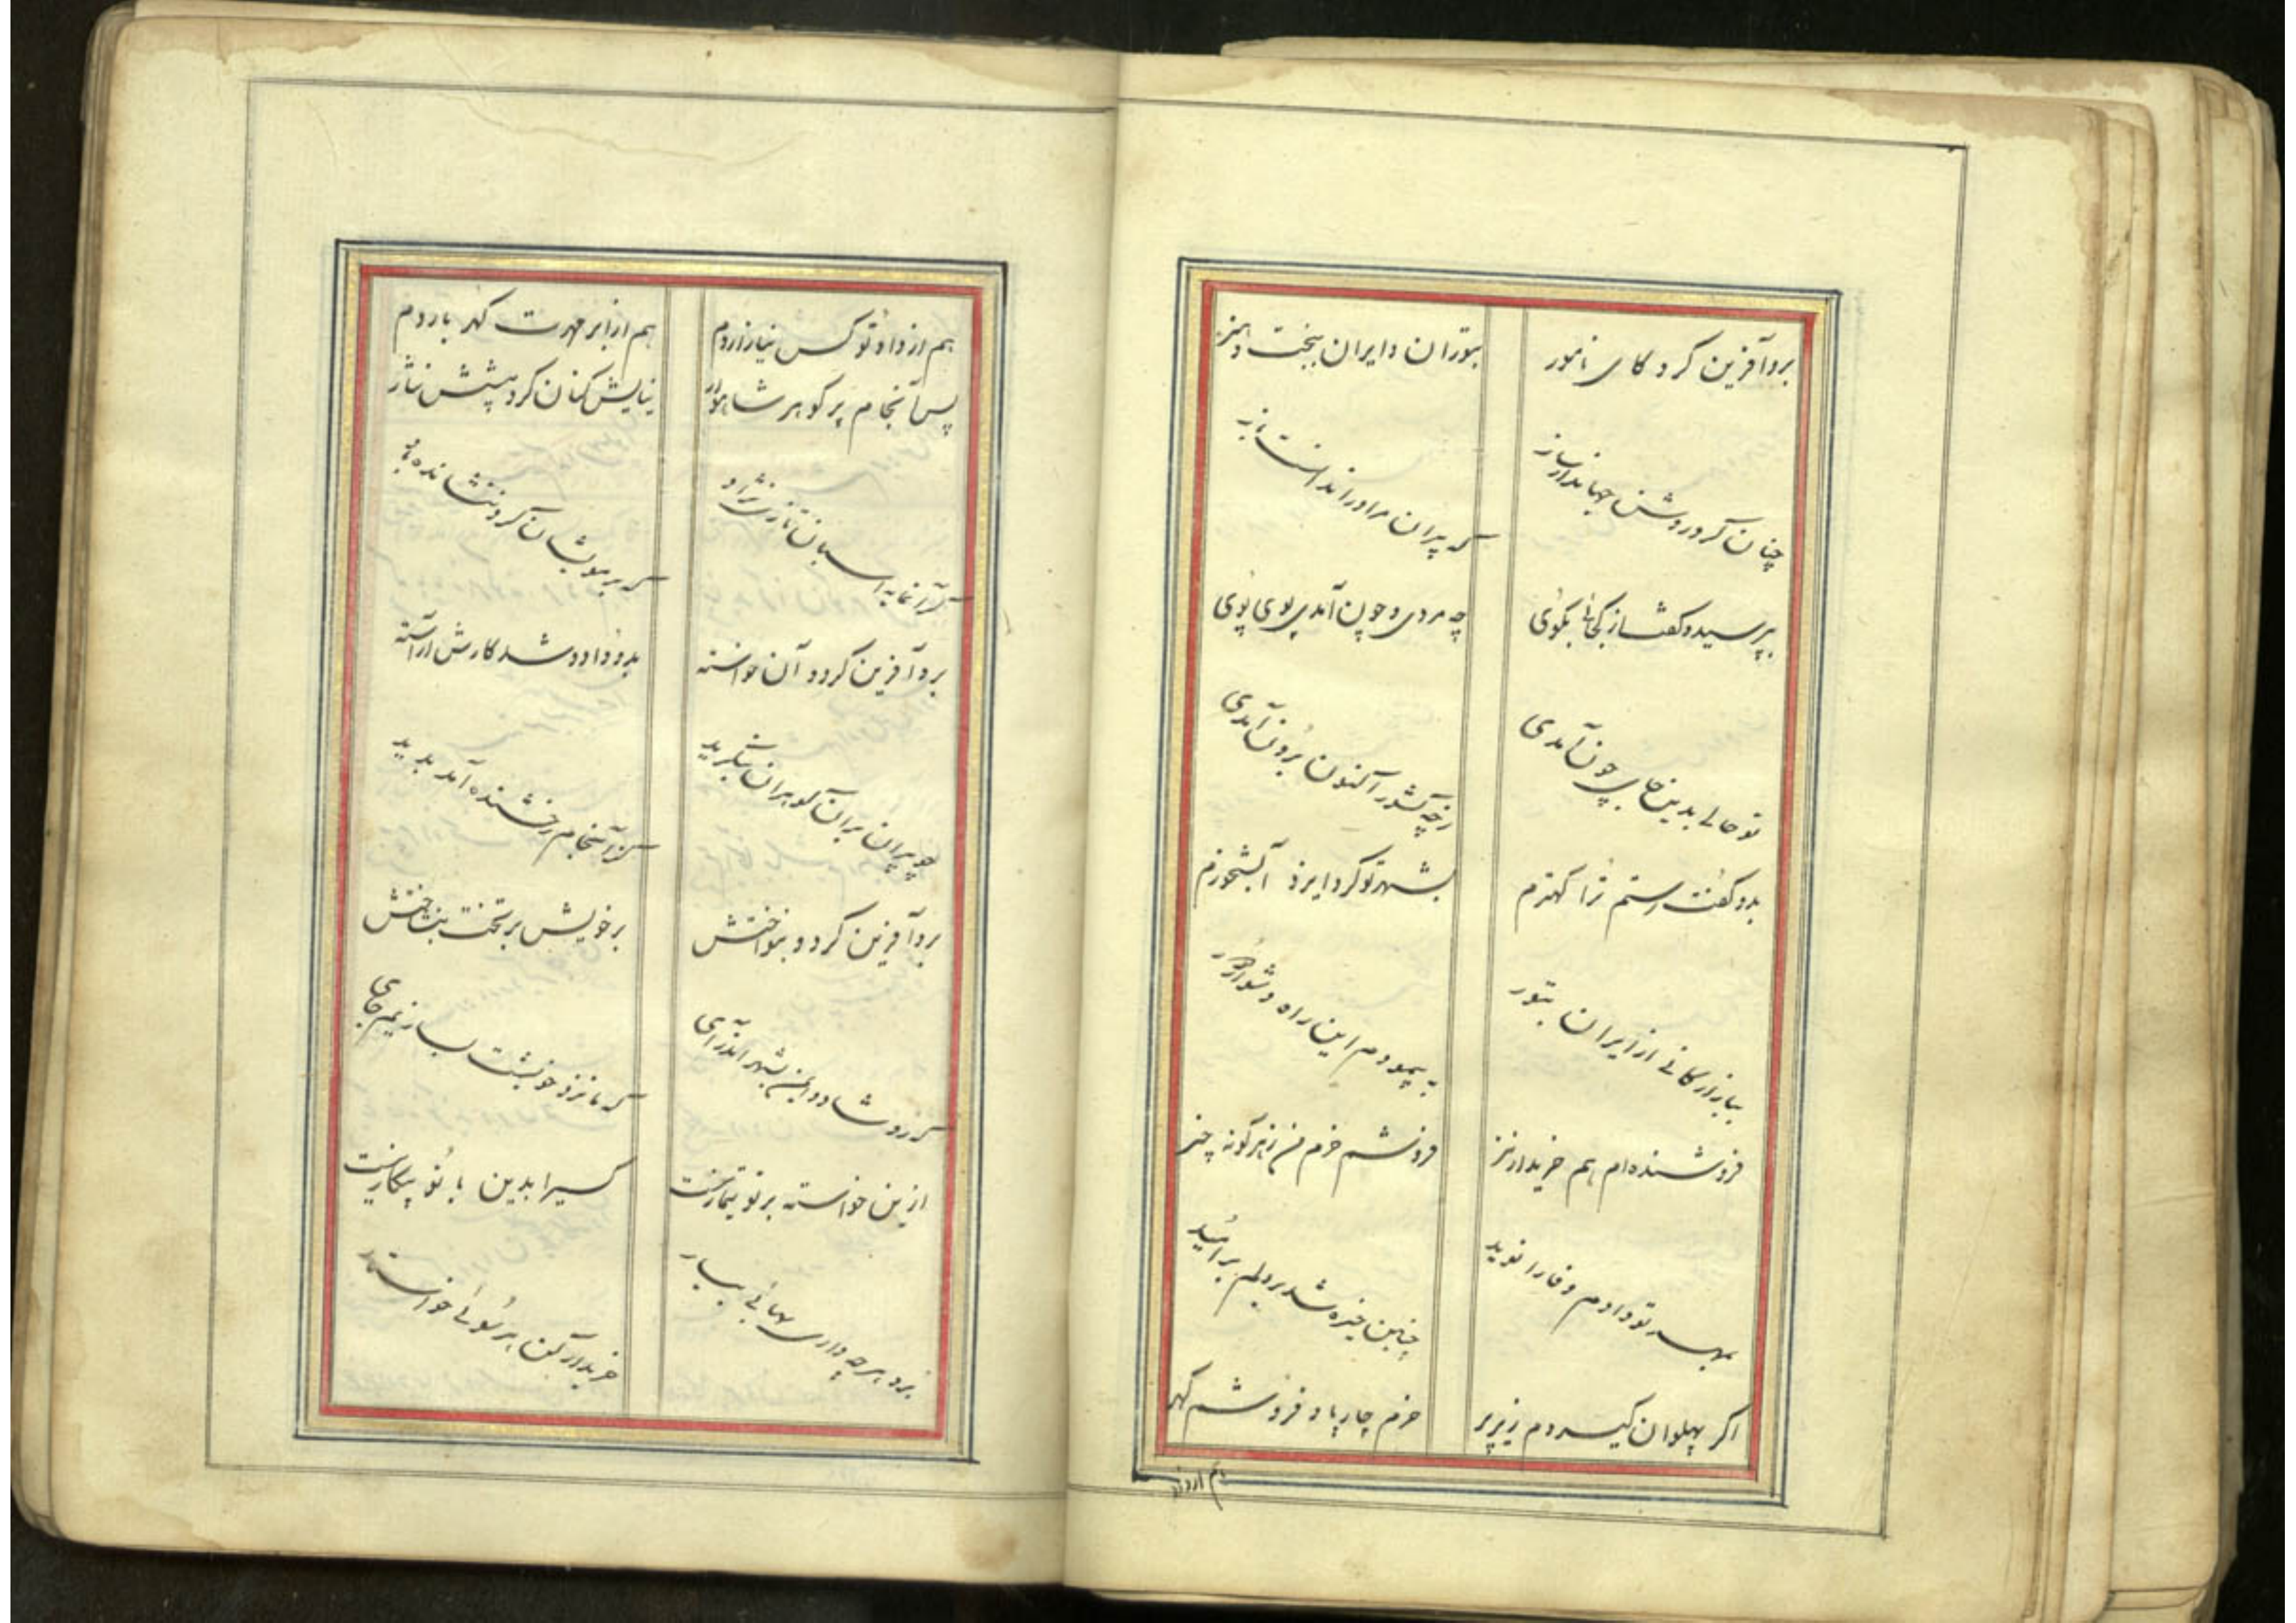 برو آفرین کرد کای نامور
بتوران و ایران ببخت و هنر
چنان کرد روشن جهاندار ساز
که پیران مر او را ندانست باز
بپرسید و گفت از کجائی بگوی
چه مردی و چون آمدی پوی پوی
تو حالی بدین جای چون آمدی
زچه کشور اکنون برون آمدی
بدو گفت رستم ترا کهترم
بشهر تو کرد ایزد آبشخورم
ببازارگانی از ایران بتور
به پیمودم این راه دشوار و دور
فروشنده ام هم خریدار نیز
فروشم خرم من زهر گونه چیز
بمهر تو دادم وفا را نوید
چنین چیره شد بر دلم بر امید
اگر پهلوان گیردم زیر پر
خرم چارپا و فروشم گهر
هم از داد
هم از داد تو کس نیازاردم
هم از ابر مهرت گهر باردم
پس آنجام پر گوهر شاهوار
نیایش کنان کرد پیشش نثار
گرانمایه اسبان تازی نژاد
که بر مویشان گرد ننشانده باد
برو آفرین کرد و آن خواسته
بدو داد و شد کارش آراسته
چو پیران بران گوهران بنگرید
کز آنجام رخشنده آمد پدید
برو آفرین کرد و بنواختش
بر خویش بر تخت بنشاختش
که رو شاد و ایمن بشهر اندرآی
که ما نزد خویشت بسازیم جای
ازین خواسته بر تو تیمار نیست
کسیرا بدین با تو پیکار نیست
برو هر چه داری بهائی بیار
خریدار کن هر سوئی خواستار